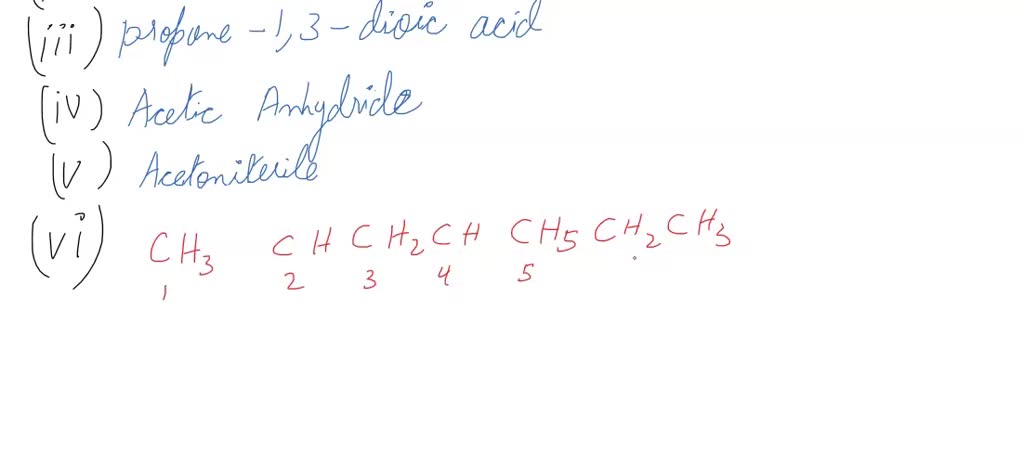 (iii) propane -1,3-dioic acid
(iv) Acetic Anhydride
(v) Acetonitrile
(vi) CH3 CH CH2 CH CH5 CH2 CH3
1 2 3 4 5